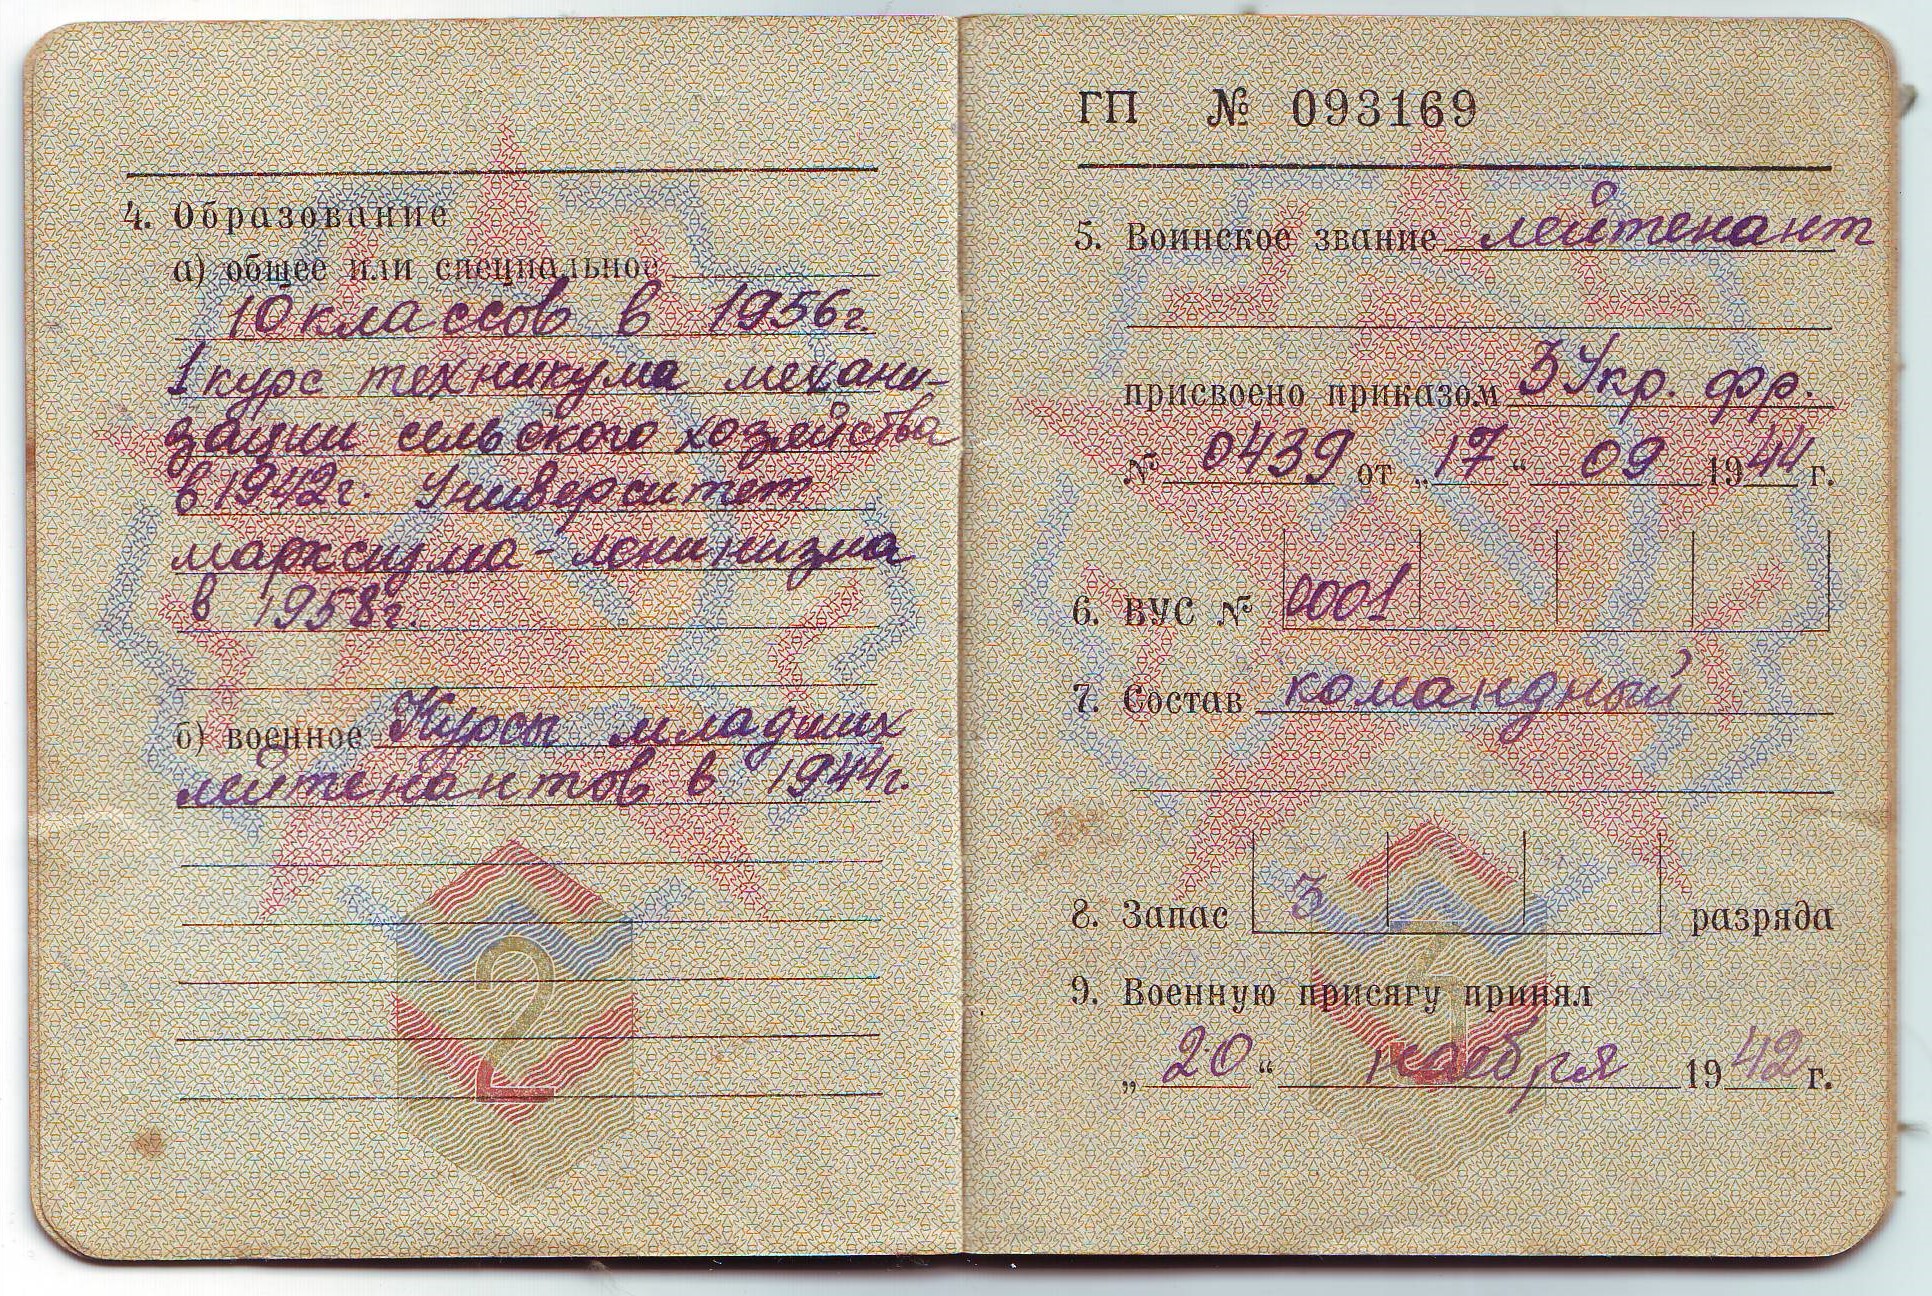 4. Образование
а) общее или специальное
10 классов в 1956г.
1 курс техникума механи-
зации сельского хозяйства
в 1942г. Университет
марксизма-ленинизма
в 1958г.
б) военное Курсы младших
лейтенантов в 1944г.
2
ГП № 093169
5. Воинское звание лейтенант
присвоено приказом 3 Укр. фр.
№ 0439 от „17“ 09 1944 г.
6. ВУС № 0001
7. Состав командный
8. Запас 3 разряда
9. Военную присягу принял
„20“ ноября 1942 г.
3